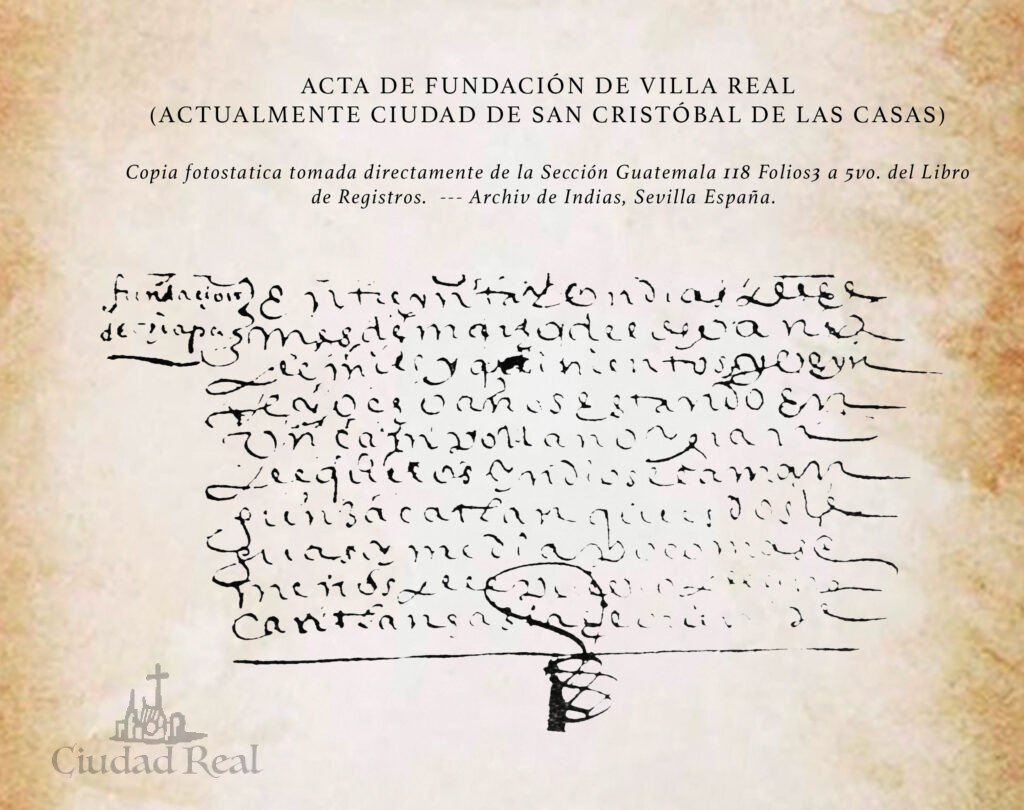 ACTA DE FUNDACIÓN DE VILLA REAL
(ACTUALMENTE CIUDAD DE SAN CRISTÓBAL DE LAS CASAS)
Copia fotostatica tomada directamente de la Sección Guatemala 118 Folios3 a 5vo. del Libro
de Registros. --- Archiv de Indias, Sevilla España.
fundacion
de chiapa
En treynta y un dias del
mes de março del año
de mill y quinientos y veyn
te y ocho años estando en
un canpo llano
los yndios llaman
que es dos le
guas y media poco mas o
menos del
Ciudad Real